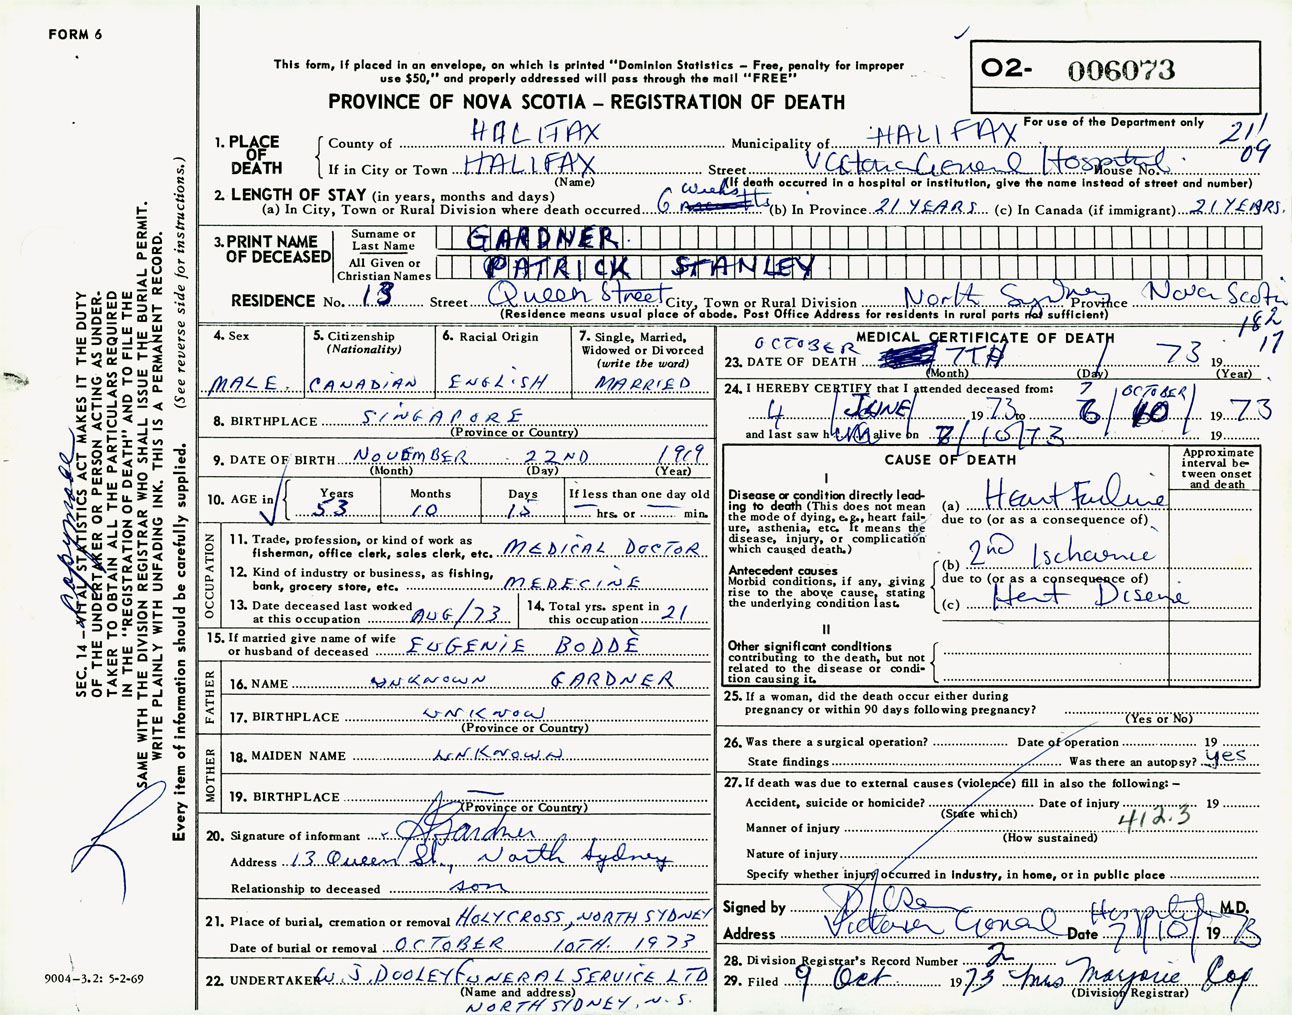 FORM 6
This form, if placed in an envelope, on which is printed "Dominion Statistics – Free, penalty for improper
use $50," and properly addressed will pass through the mail "FREE"
PROVINCE OF NOVA SCOTIA – REGISTRATION OF DEATH
O2- 006073
For use of the Department only
211
09
1. PLACE OF DEATH
County of HALIFAX Municipality of HALIFAX
If in City or Town HALIFAX Street Victoria General Hospital House No.
(Name) (If death occurred in a hospital or institution, give the name instead of street and number)
2. LENGTH OF STAY (in years, months and days)
(a) In City, Town or Rural Division where death occurred 6 weeks (b) In Province 21 YEARS (c) In Canada (if immigrant) 21 YEARS.
3. PRINT NAME OF DECEASED
Surname or Last Name GARDNER
All Given or Christian Names PATRICK STANLEY
RESIDENCE No. 13 Street Queen Street City, Town or Rural Division North Sydney Province Nova Scotia
(Residence means usual place of abode. Post Office Address for residents in rural parts not sufficient)
182
17
4. Sex MALE
5. Citizenship (Nationality) CANADIAN
6. Racial Origin ENGLISH
7. Single, Married, Widowed or Divorced (write the word) MARRIED
8. BIRTHPLACE SINGAPORE
(Province or Country)
9. DATE OF BIRTH NOVEMBER 22ND 1919
(Month) (Day) (Year)
10. AGE in Years 53 Months 10 Days 15 If less than one day old
hrs. or min.
OCCUPATION
11. Trade, profession, or kind of work as
fisherman, office clerk, sales clerk, etc. MEDICAL DOCTOR
12. Kind of industry or business, as fishing,
bank, grocery store, etc. MEDECINE
13. Date deceased last worked at this occupation AUG/73
14. Total yrs. spent in this occupation 21
15. If married give name of wife
or husband of deceased EUGENIE BODDÈ
FATHER
16. NAME UNKNOWN GARDNER
17. BIRTHPLACE UNKNOW
(Province or Country)
MOTHER
18. MAIDEN NAME UNKNOWN
19. BIRTHPLACE —
(Province or Country)
20. Signature of informant Gardner
Address 13 Queen St., North Sydney
Relationship to deceased son
21. Place of burial, cremation or removal HOLYCROSS, NORTH SYDNEY
Date of burial or removal OCTOBER 10TH. 1973
22. UNDERTAKER W. J. DOOLEY FUNERAL SERVICE LTD
(Name and address)
NORTH SYDNEY, N. S.
MEDICAL CERTIFICATE OF DEATH
OCTOBER
23. DATE OF DEATH 7TH 73 19
(Month) (Day) (Year)
24. I HEREBY CERTIFY that I attended deceased from: 7 OCTOBER
4 / JUNE / 1973 to 6 / 10 / 1973
and last saw him alive on 7/10/73 19
CAUSE OF DEATH
Approximate interval between onset and death
I
Disease or condition directly leading to death (This does not
mean the mode of dying, e.g., heart failure, asthenia, etc. It means the
disease, injury, or complication
which caused death.)
(a) Heart Failure
due to (or as a consequence of)
(b) 2nd Ischaemic
Antecedent causes
Morbid conditions, if any, giving
rise to the above cause, stating
the underlying condition last.
due to (or as a consequence of)
(c) Heart Disease
II
Other significant conditions
contributing to the death, but not
related to the disease or condition
causing it.
25. If a woman, did the death occur either during
pregnancy or within 90 days following pregnancy?
(Yes or No)
26. Was there a surgical operation? Date of operation 19
State findings Was there an autopsy? yes
27. If death was due to external causes (violence) fill in also the following: –
Accident, suicide or homicide? Date of injury 19
(State which)
412.3
Manner of injury
(How sustained)
Nature of injury
Specify whether injury occurred in industry, in home, or in public place
Signed by M.D.
Address Victoria General Hospital Date 7/10/ 1973
28. Division Registrar's Record Number 2
29. Filed 9 Oct 1973 Mrs Marjorie
(Division Registrar)
SEC. 14 – VITAL STATISTICS ACT MAKES IT THE DUTY
OF THE UNDERTAKER OR PERSON ACTING AS UNDERTAKER
TO OBTAIN ALL THE PARTICULARS REQUIRED
IN THE "REGISTRATION OF DEATH" AND TO FILE THE
SAME WITH THE DIVISION REGISTRAR WHO SHALL ISSUE THE BURIAL PERMIT.
WRITE PLAINLY WITH UNFADING INK. THIS IS A PERMANENT RECORD.
Every item of information should be carefully supplied. (See reverse side for instructions.)
9004–3.2: 5-2-69